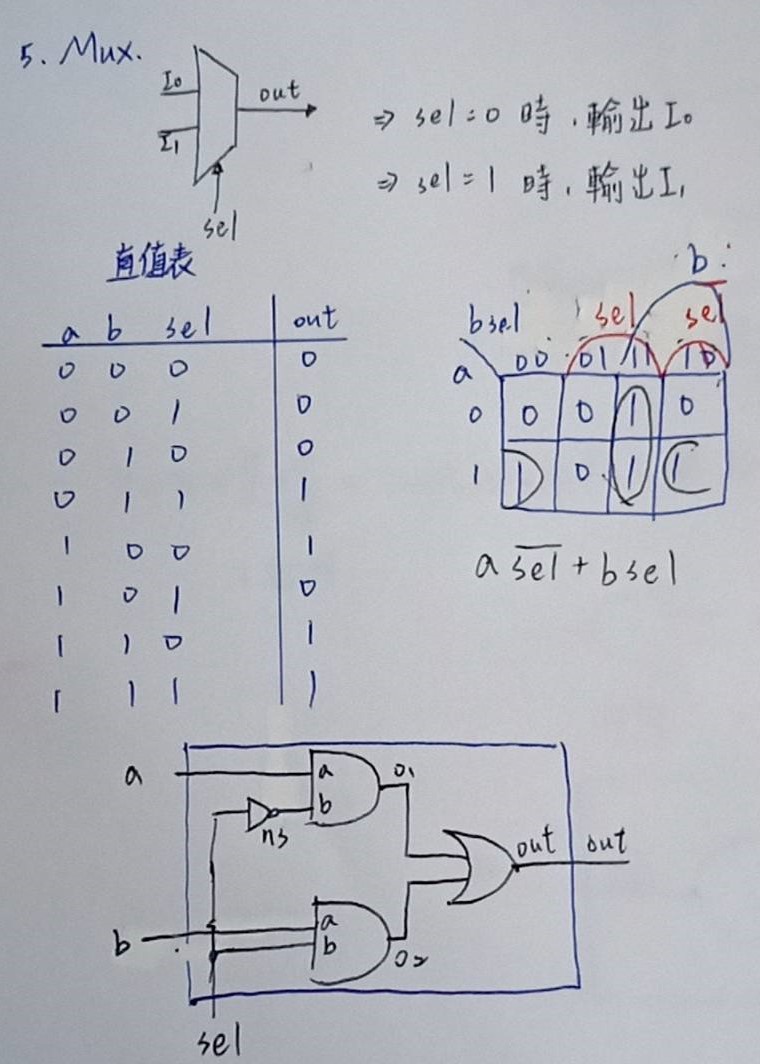 5. Mux.
I0
out
I1
sel
⇒ sel = 0 時, 輸出 I0
⇒ sel = 1 時, 輸出 I1
真值表
a b sel out
0 0 0 0
0 0 1 0
0 1 0 0
0 1 1 1
1 0 0 1
1 0 1 0
1 1 0 1
1 1 1 1
b
sel sel
b sel
a 00 01 11 10
0 0 0 1 0
1 1 0 1 1
a s̅e̅l̅ + b sel
a
a
b
o1
ns
out out
b
a
b
o2
sel